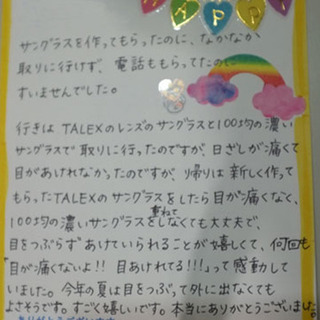 APP
サングラスを作ってもらったのに、なかなか
取りに行けず、電話ももらってたのに
すいませんでした。
行きは TALEXのレンズのサングラスと100均の濃い
サングラスで 取りに行ったのですが、日ざしが痛くて
目があけれなかったのですが、帰りは 新しく作って
もらったTALEXの サングラスをしたら 目が痛くなく、
100均の濃いサングラスを重ねてしなくても大丈夫で、
目をつぶらず あけていられることが 嬉しくて、何回も
"目が痛くないよ!! 目あけれてる!!!"って 感動して
いました。今年の夏は 目をつぶって 外に出なくても
よさそうです。すごく嬉しいです。本当にありがとうございました。